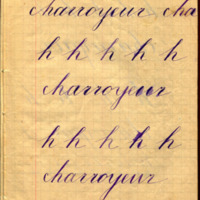 charroyeur cha
h h h h h
charroyeur
h h h h h
charroyeur